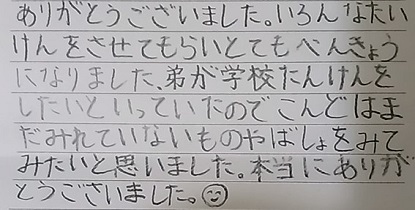 ありがとうございました。いろんなたい
けんをさせてもらいとてもべんきょう
になりました、弟が学校たんけんを
したいといっていたのでこんどはま
だみれていないものやばしょをみて
みたいと思いました。本当にありが
とうございました。